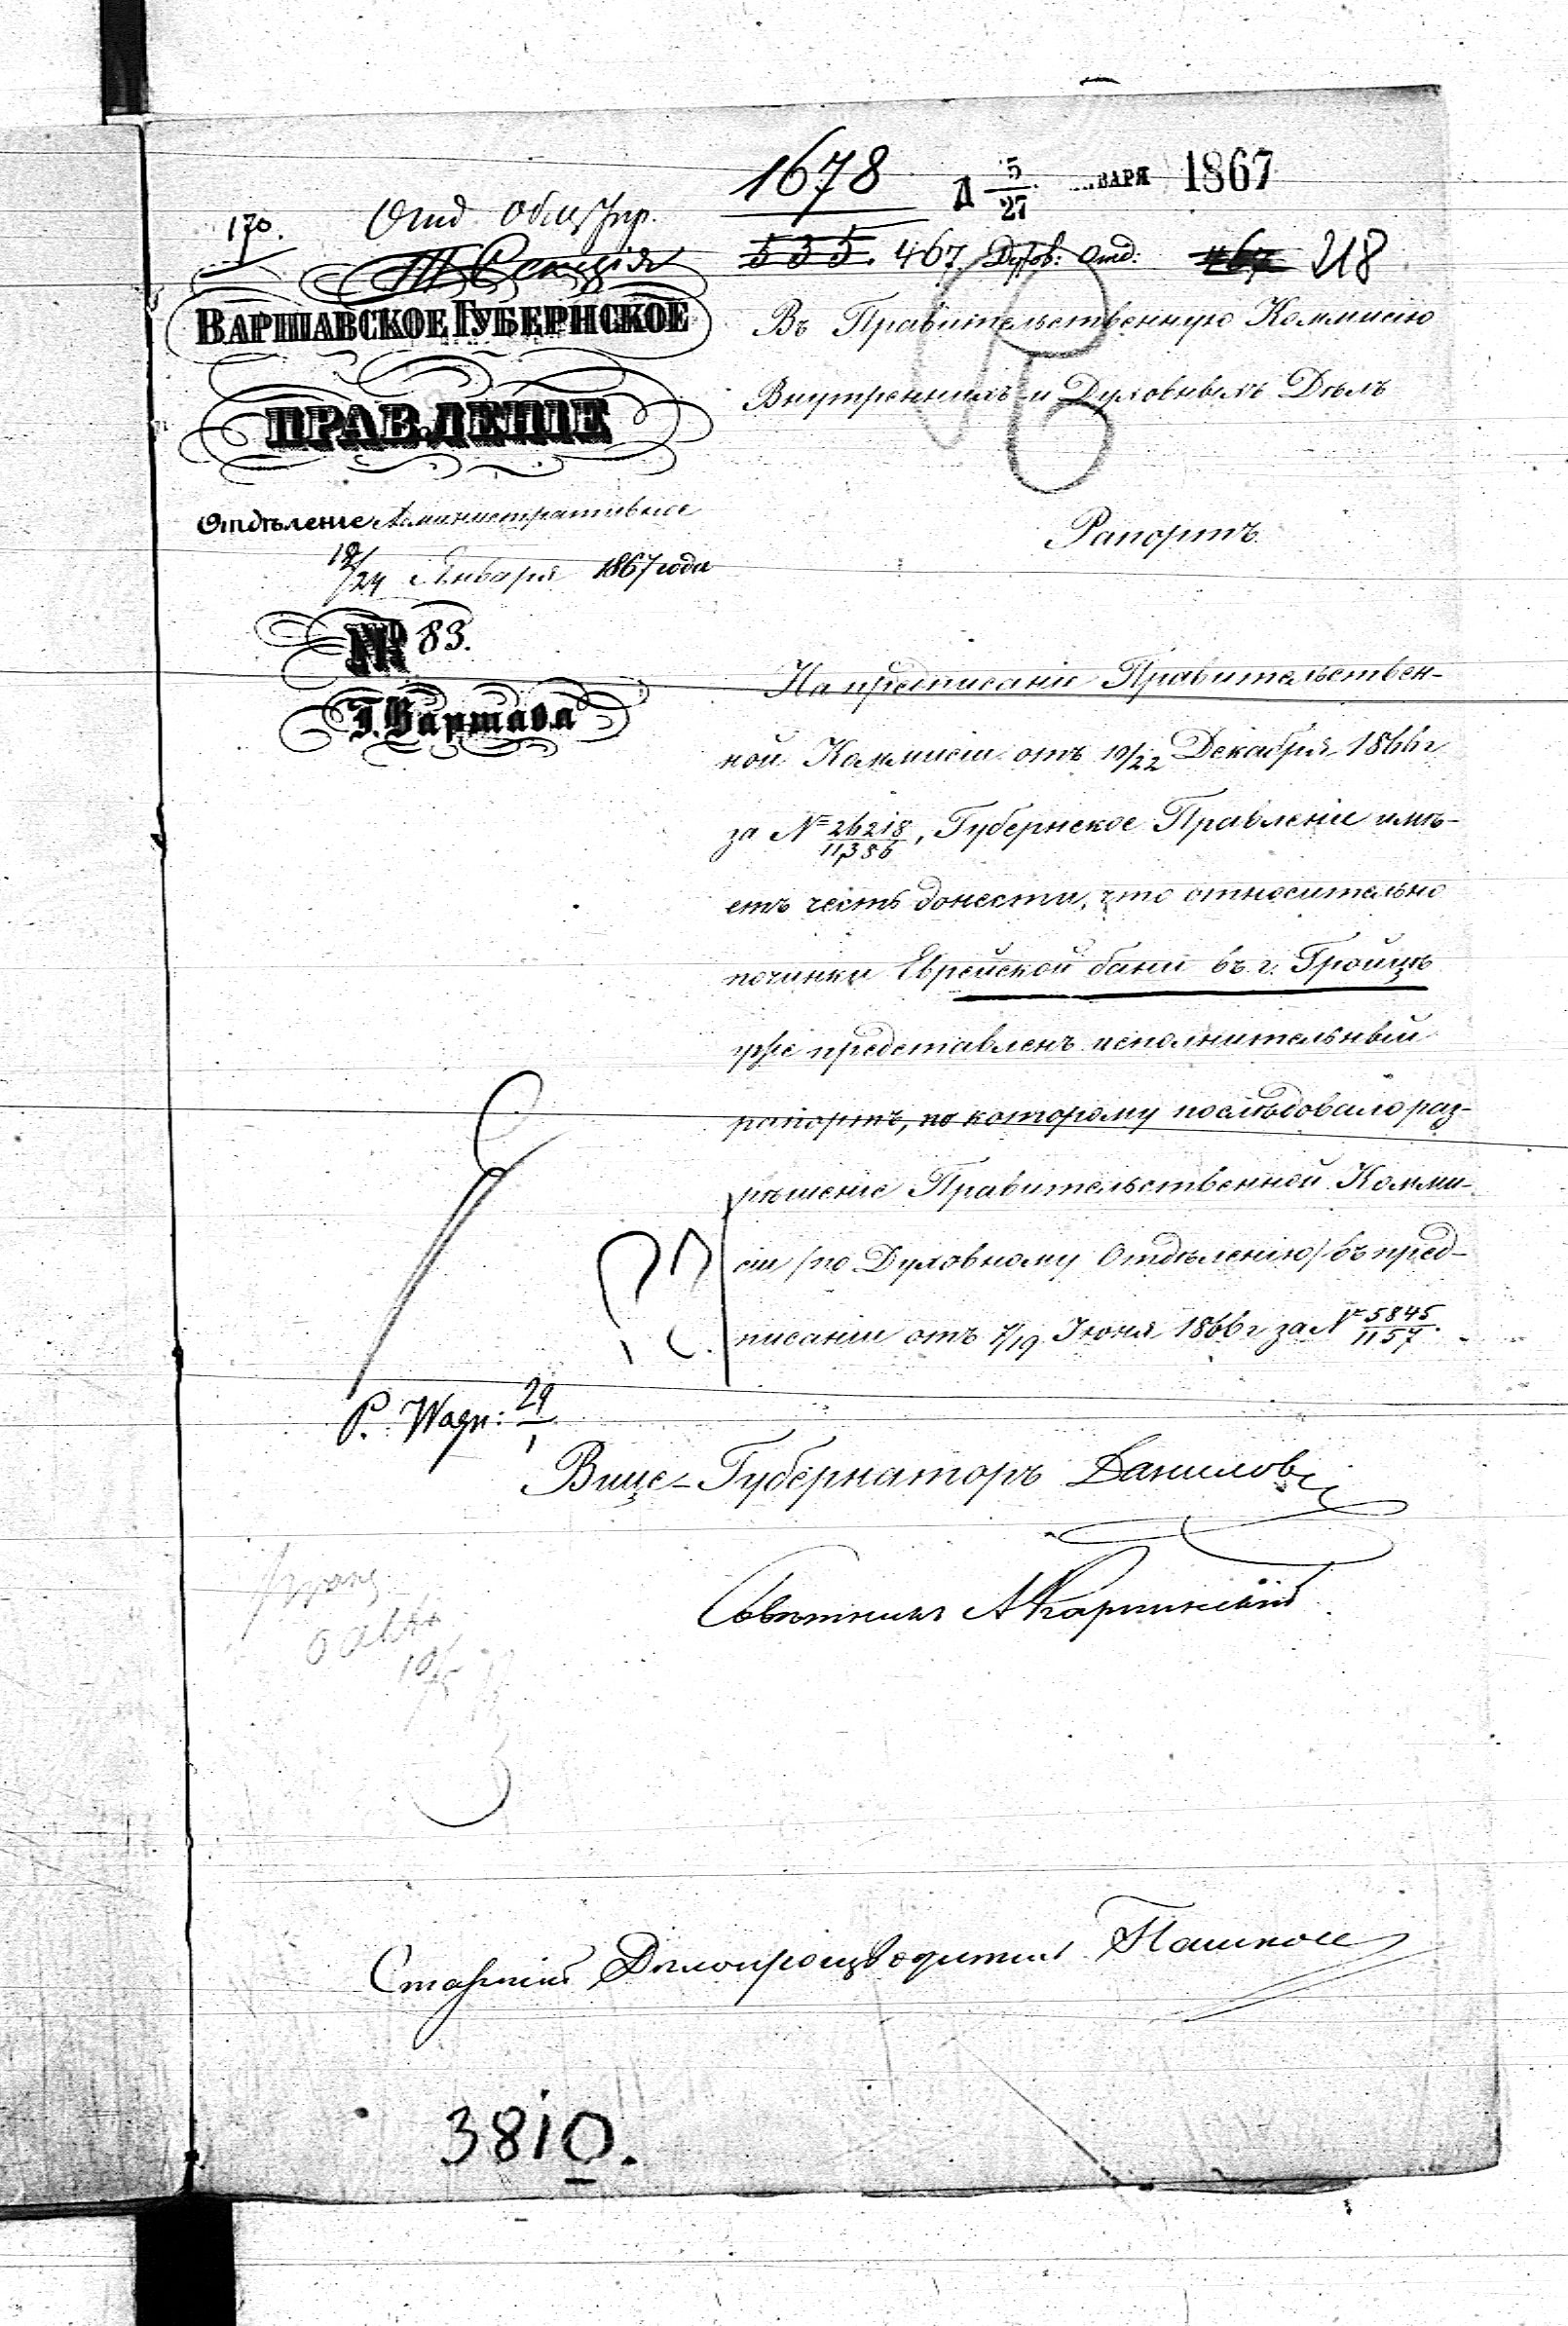 1678
Д 15/27 ЯНВАРЯ 1867
170.
Отд Общ Упр.
III Секція
535. 467 Духов: Отд: 467 218
ВАРШАВСКОЕ ГУБЕРНСКОЕ
ПРАВЛЕНІЕ
Отдѣленіе Административное
12/24 Января 1867 года
№ 83.
Г. Варшава
Въ Правительственную Коммисію
Внутреннихъ и Духовныхъ Дѣлъ
Рапортъ
На предписаніе Правительствен-
ной Коммисіи отъ 10/22 Декабря 1866 г
за № 26218/11386, Губернское Правленіе имѣ-
етъ честь донести, что относительно
починки Еврейской бани въ г. Гройцѣ
уже представленъ исполнительный
рапортъ, по которому послѣдовало раз-
рѣшеніе Правительственной Комми-
сіи (по Духовному Отдѣленію) въ пред-
писаніи отъ 7/19 Іюня 1866 г за № 5845/1157.
P. Wagn: 29/1
Вице-Губернаторъ Данилов
Совѣтникъ
Старшій Дѣлопроизводитель
3810.